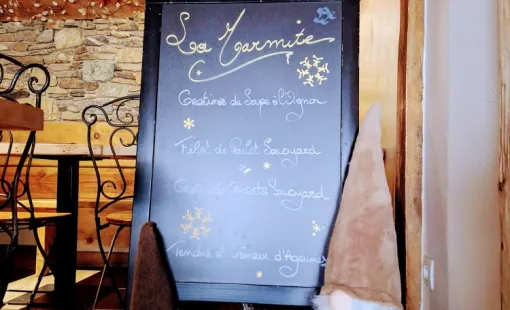 La Marmite
Gratinée de Soupe à l'Oignon
Filet de Poulet Savoyard
Savoyard
Tendre et d'Agrumes